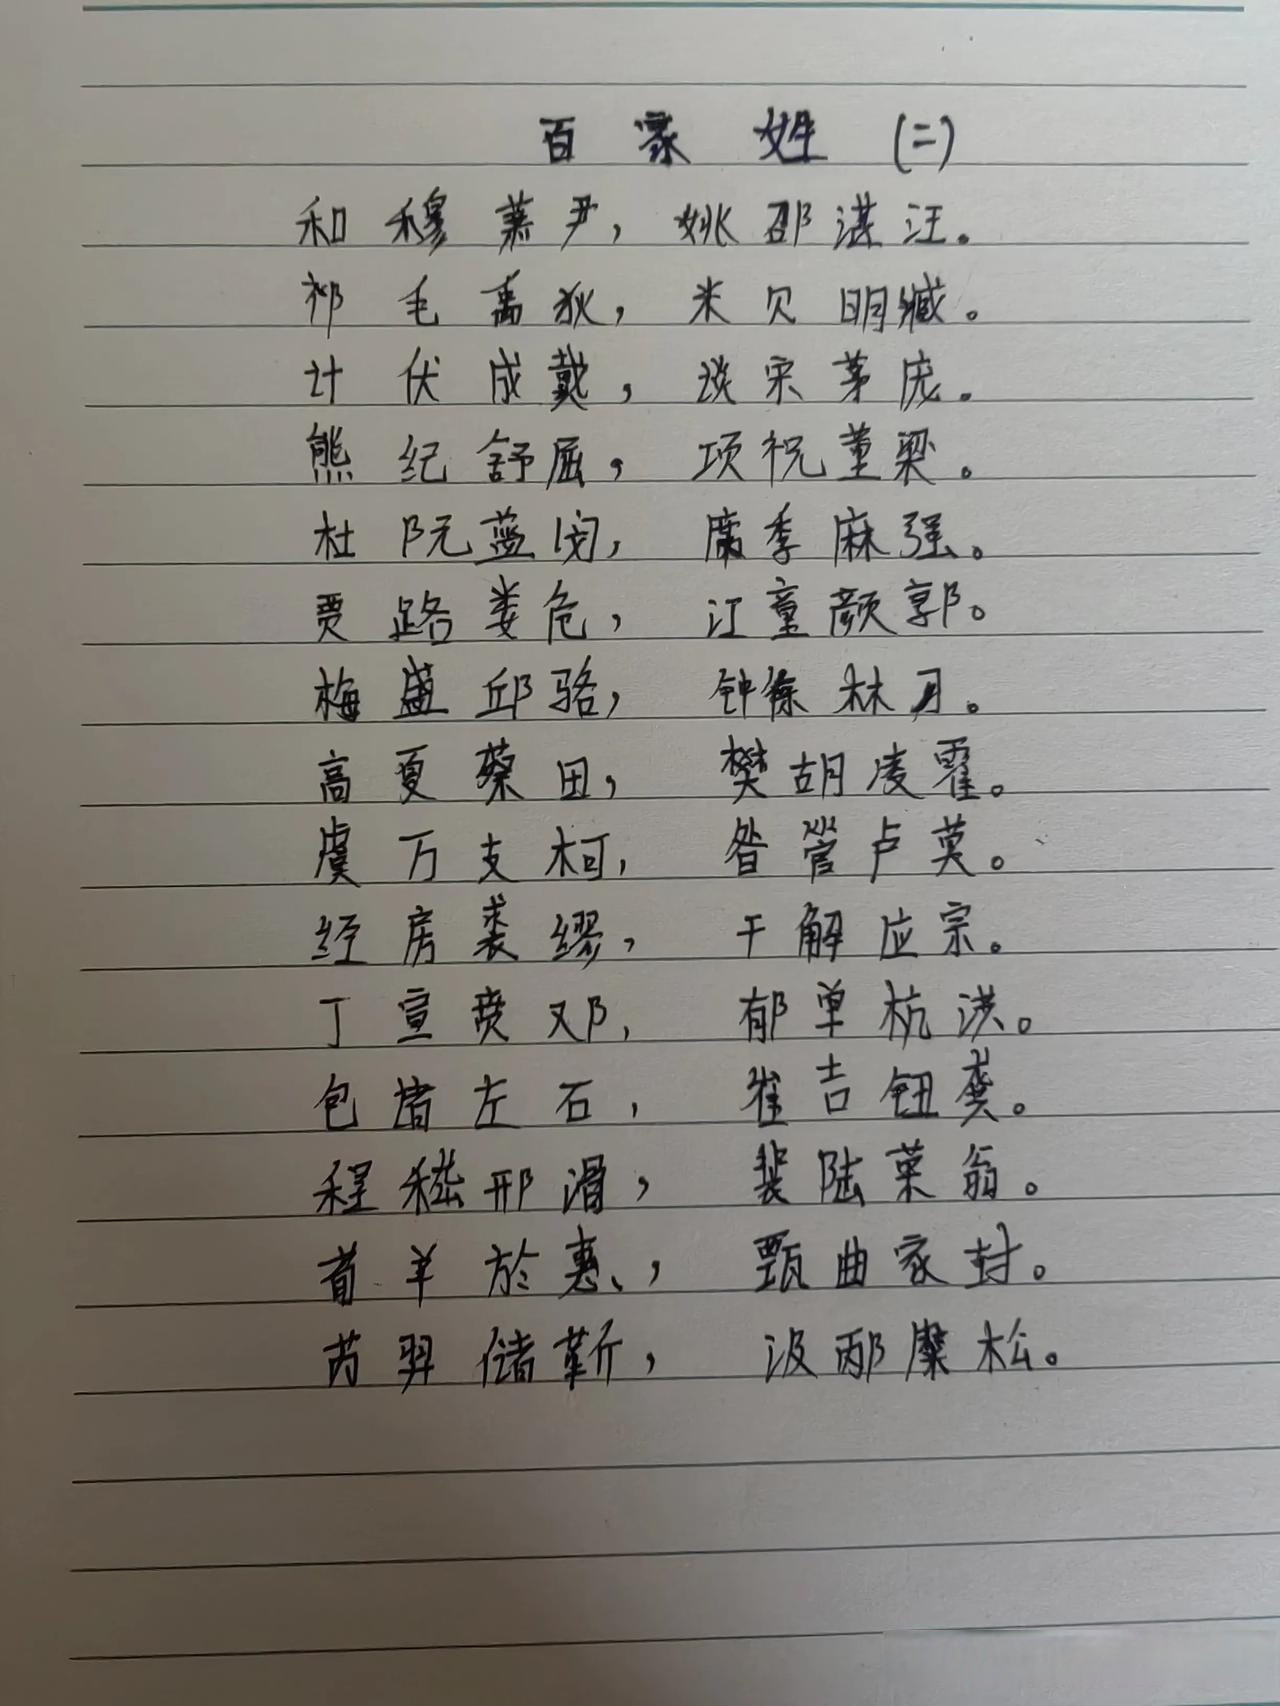 百家姓(二)
和穆萧尹,姚邵湛汪。
祁毛禹狄,米贝明臧。
计伏成戴,谈宋茅庞。
熊纪舒屈,项祝董梁。
杜阮蓝闵,席季麻强。
贾路娄危,江童颜郭。
梅盛邱骆,钟徐林刁。
高夏蔡田,樊胡凌霍。
虞万支柯,昝管卢莫。
经房裘缪,干解应宗。
丁宣贲邓,郁单杭洪。
包堵左石,崔吉钮龚。
程嵇邢滑,裴陆荣翁。
荀羊於惠,甄曲家封。
芮羿储靳,汲邴糜松。